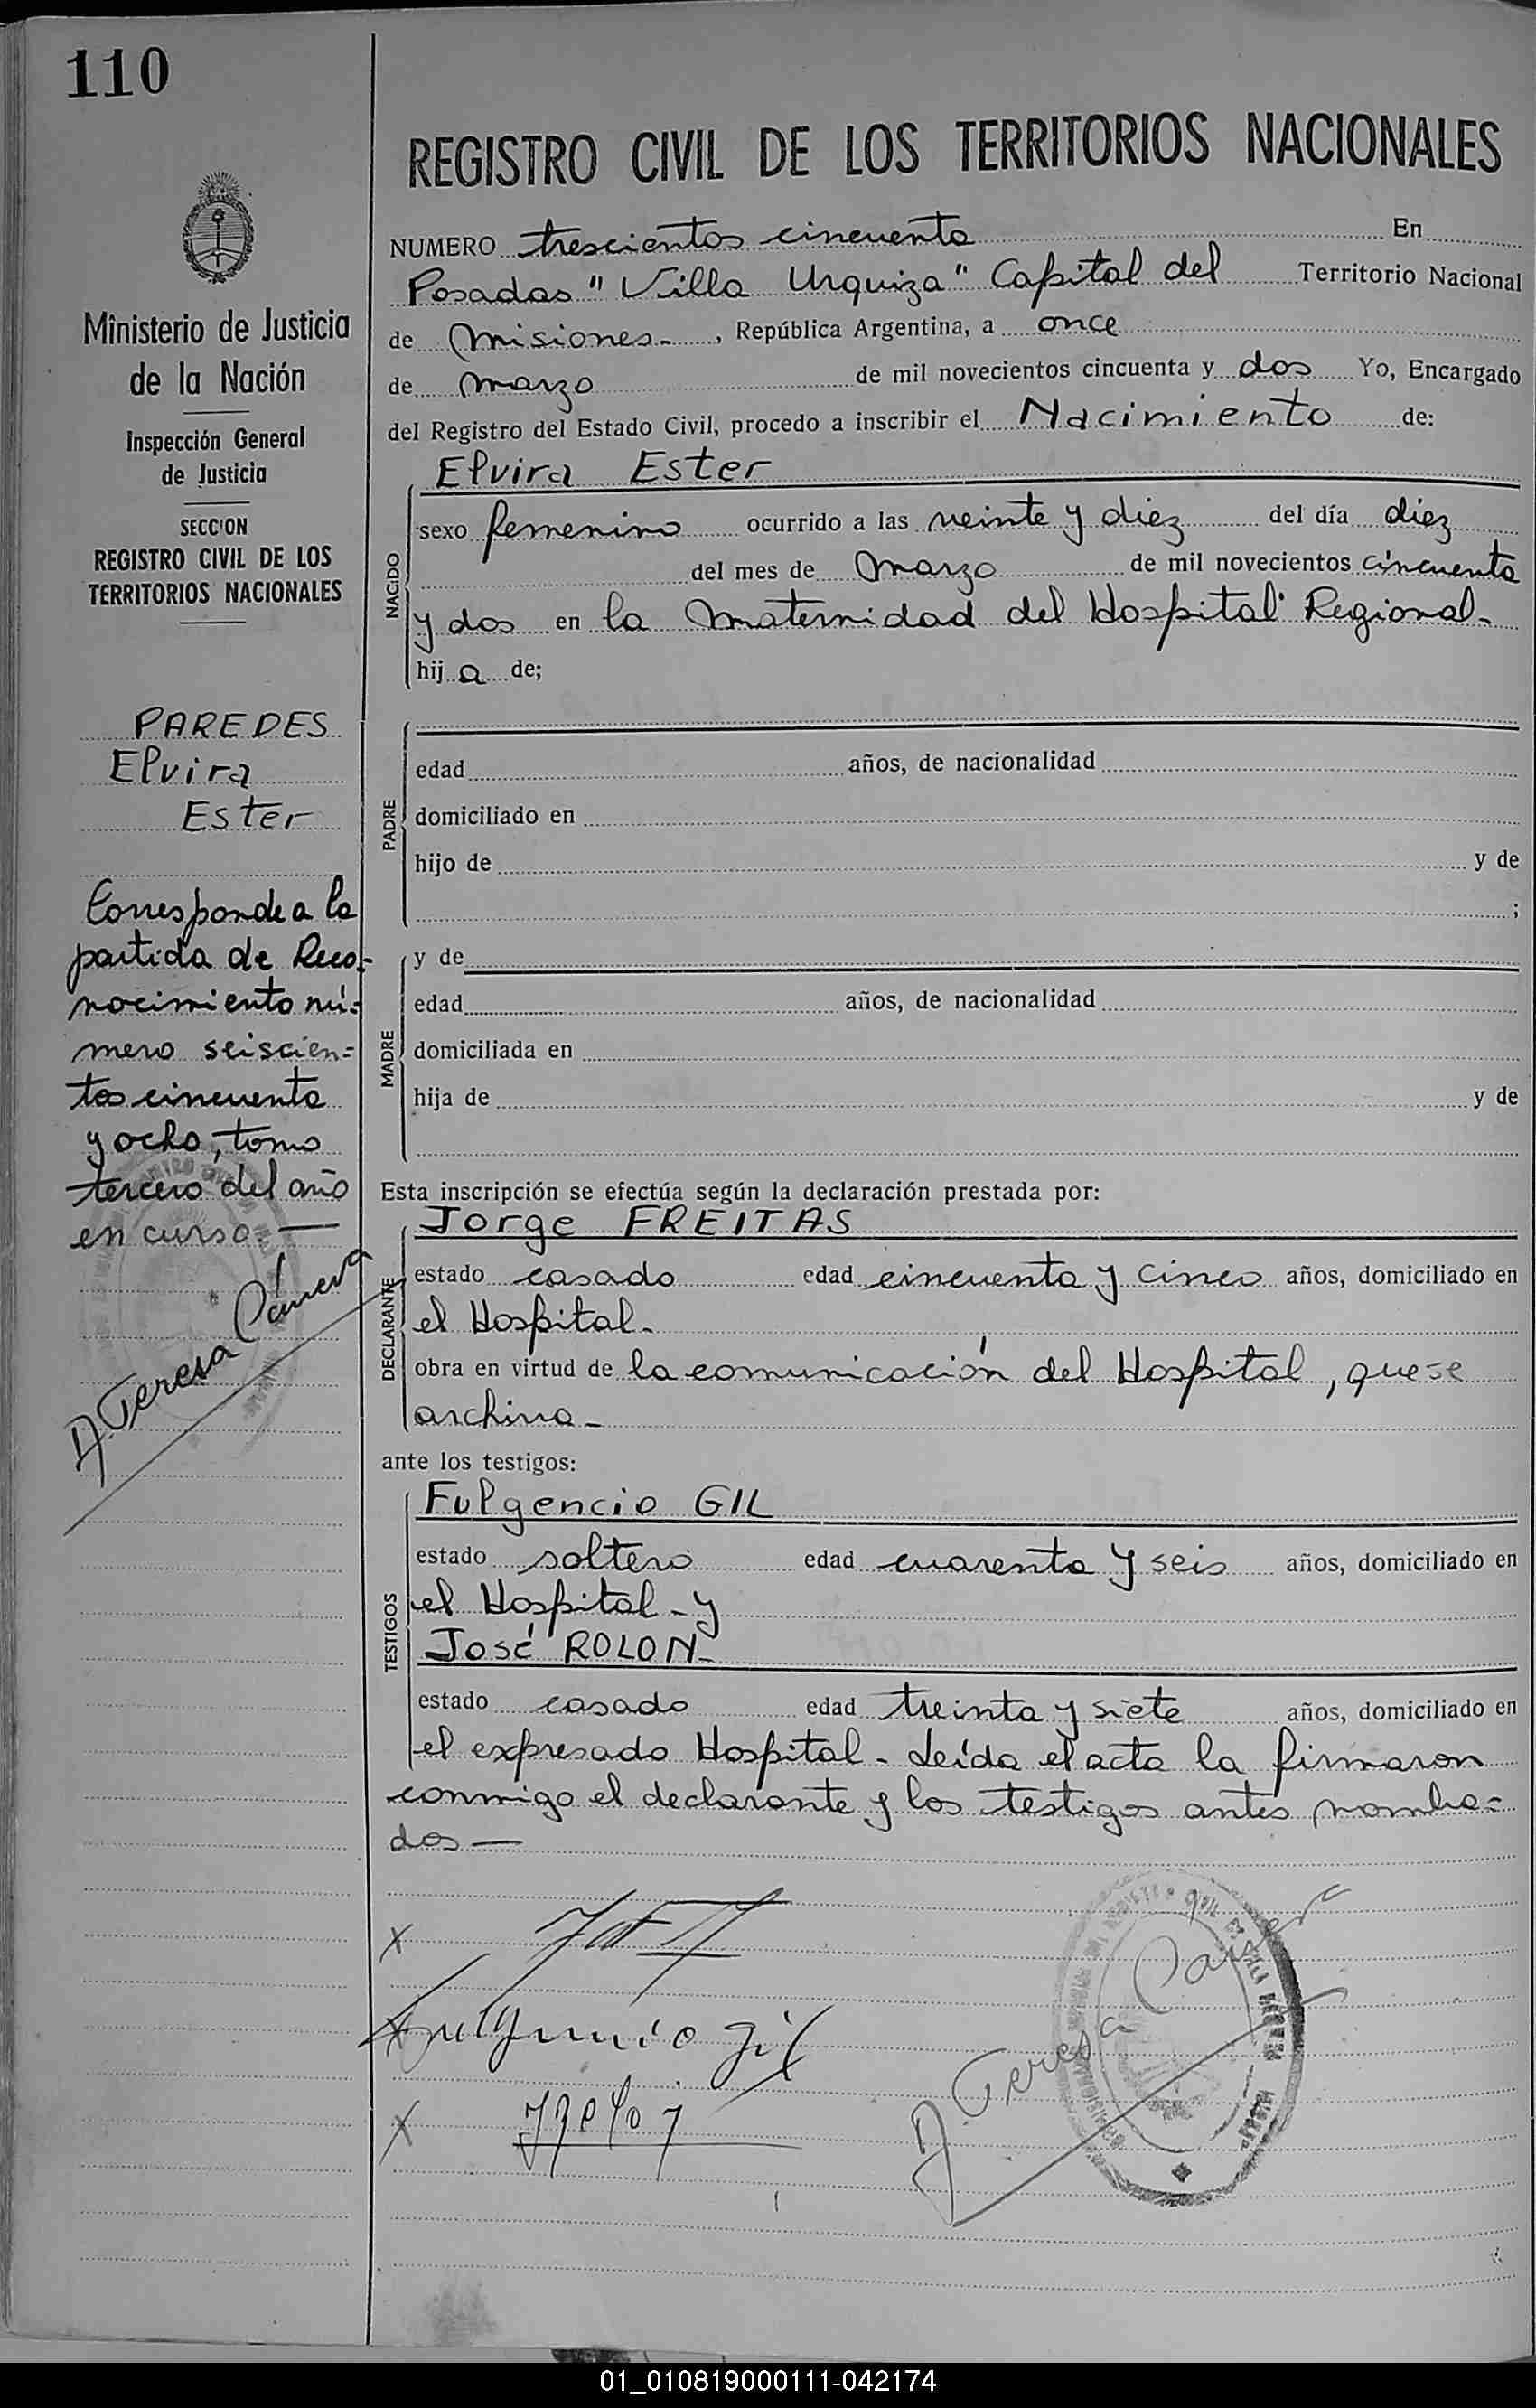 110
REGISTRO CIVIL DE LOS TERRITORIOS NACIONALES
Ministerio de Justicia
de la Nación
Inspección General
de Justicia
SECCION
REGISTRO CIVIL DE LOS
TERRITORIOS NACIONALES
PAREDES
Elvira
Ester
Corresponde a la
partida de Reco-
nocimiento nú=
mero seiscien=
tos cincuenta
y ocho, tomo
tercero del año
en curso. —
D. Teresa
NUMERO trescientos cincuenta En
Posadas "Villa Urquiza" Capital del Territorio Nacional
de Misiones-, República Argentina, a once
de marzo de mil novecientos cincuenta y dos Yo, Encargado
del Registro del Estado Civil, procedo a inscribir el Nacimiento de:
Elvira Ester
NACIDO
sexo femenino ocurrido a las veinte y diez del día diez
del mes de marzo de mil novecientos cincuenta
y dos en la Maternidad del Hospital Regional-
hija de;
PADRE
edad años, de nacionalidad
domiciliado en
hijo de y de
;
MADRE
y de
edad años, de nacionalidad
domiciliada en
hija de y de
Esta inscripción se efectúa según la declaración prestada por:
DECLARANTE
Jorge FREITAS
estado casado edad cincuenta y cinco años, domiciliado en
el Hospital-
obra en virtud de la comunicación del Hospital, que se
archiva-
ante los testigos:
TESTIGOS
Fulgencio GIL
estado soltero edad cuarenta y seis años, domiciliado en
el Hospital - y
José ROLON-
estado casado edad treinta y siete años, domiciliado en
el expresado Hospital - Leída el acta la firmaron
conmigo el declarante y los testigos antes nombra=
dos —
x
Fulgencio Gil
x
D. Teresa
01_010819000111-042174